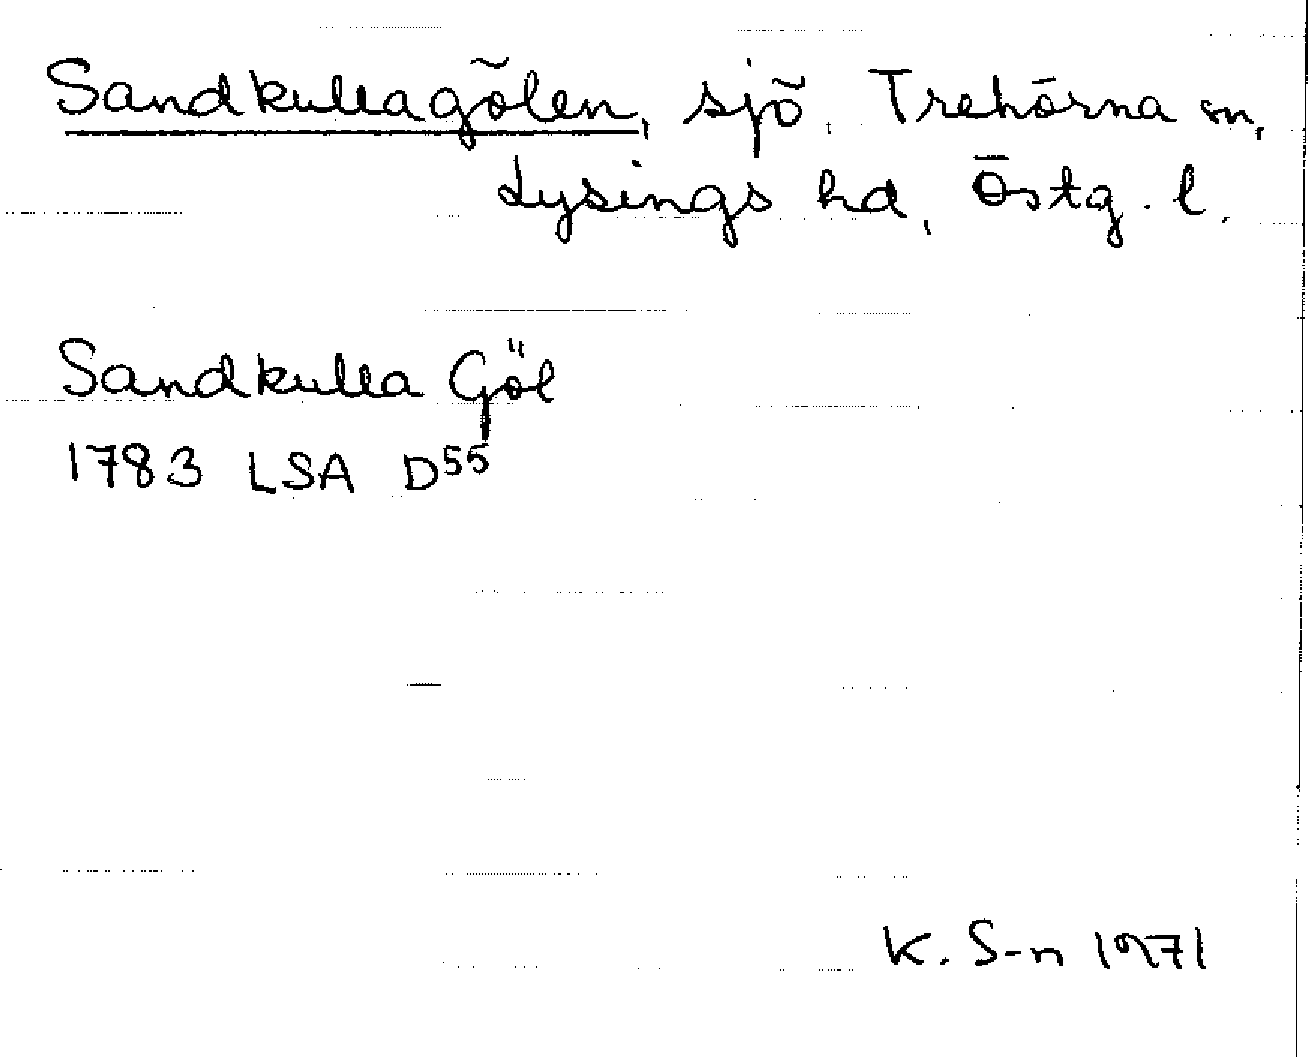 Sandkullagölen, sjö, Trehörna sn,
Lysings hd, Östg. l.
Sandkulla Göl
1783 LSA D55
K. S-n 1971